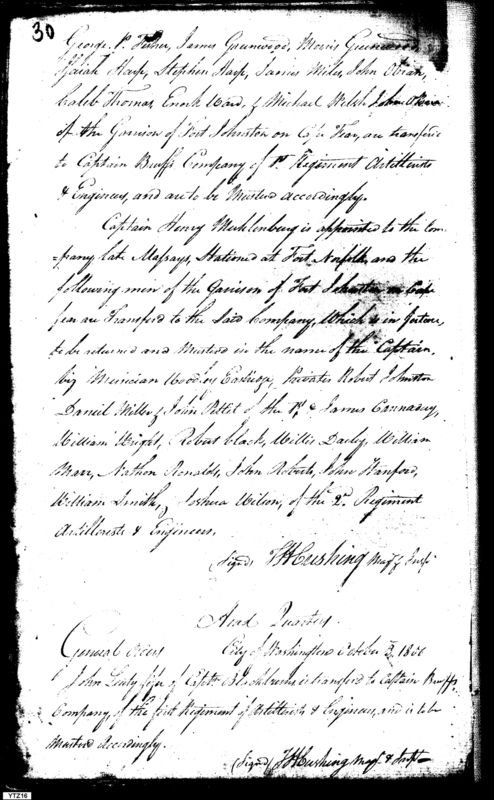 30
George P. Fisher, James Greenwood, Morris Greenwood
Isaiah Harp, Stephen Harp, James Miles, John
Caleb Thomas, Enoch Ward, & Michael Welch, John
of the Garrison of Fort Johnston on Cape Fear, are transferd
to Captain Bruffs Company of 1st Regiment Artillerists
& Engineers, and are to be Mustered accordingly.
Captain Henry Muhlenburg is appointed to the Com-
=pany late Massays, Stationed at Fort Norfolk, and the
following men of the Garrison of Fort Johnston on Cape
fear are Transferd to the Said Company, Which is in future,
to be returned and Musterd in the name of the Captain.
Viz Musician Eastridge, Privates Robert Johnston
Daniel Miller, John Pettet of the 1st & James Cannaday,
William Wright, Robert Clack, Willis Darby, William
Marr, Nathan Ronalds, John Roberts, John Hanford,
William Smith, & Joshua Wilson, of the 2d. Regiment
Artillerists & Engineers.
(Signd) THCushing Majr & Inspr
Head Quarters
General Orders City of Washington October 3d, 1800
John Fifer of Captn Blackburns, is transferd to Captain Bruffs
Company, of the first Regiment of Artillerists & Engineers, and is to be
Musterd Accordingly.
(Signd) THCushing Majr & Inspr
YTZ16